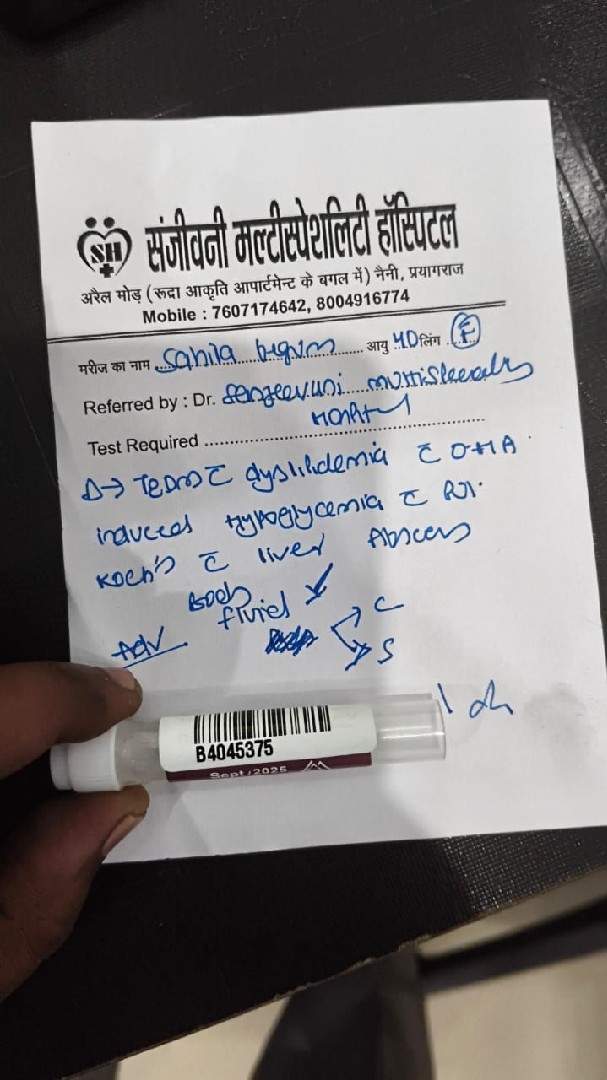 SH संजीवनी मल्टीस्पेशलिटी हॉस्पिटल
अरैल मोड़ (रूद्रा आकृति आपार्टमेन्ट के बगल में) नैनी, प्रयागराज
Mobile : 7607174642, 8004916774
मरीज का नाम Sahila आयु 40 लिंग F
Referred by : Dr.
Test Required
dyslihdemia c OHA
induced Hypoglycemia c
Koch's c liver Abscess
Body
fluid
Adv
C
S
B4045375
Sept/2025